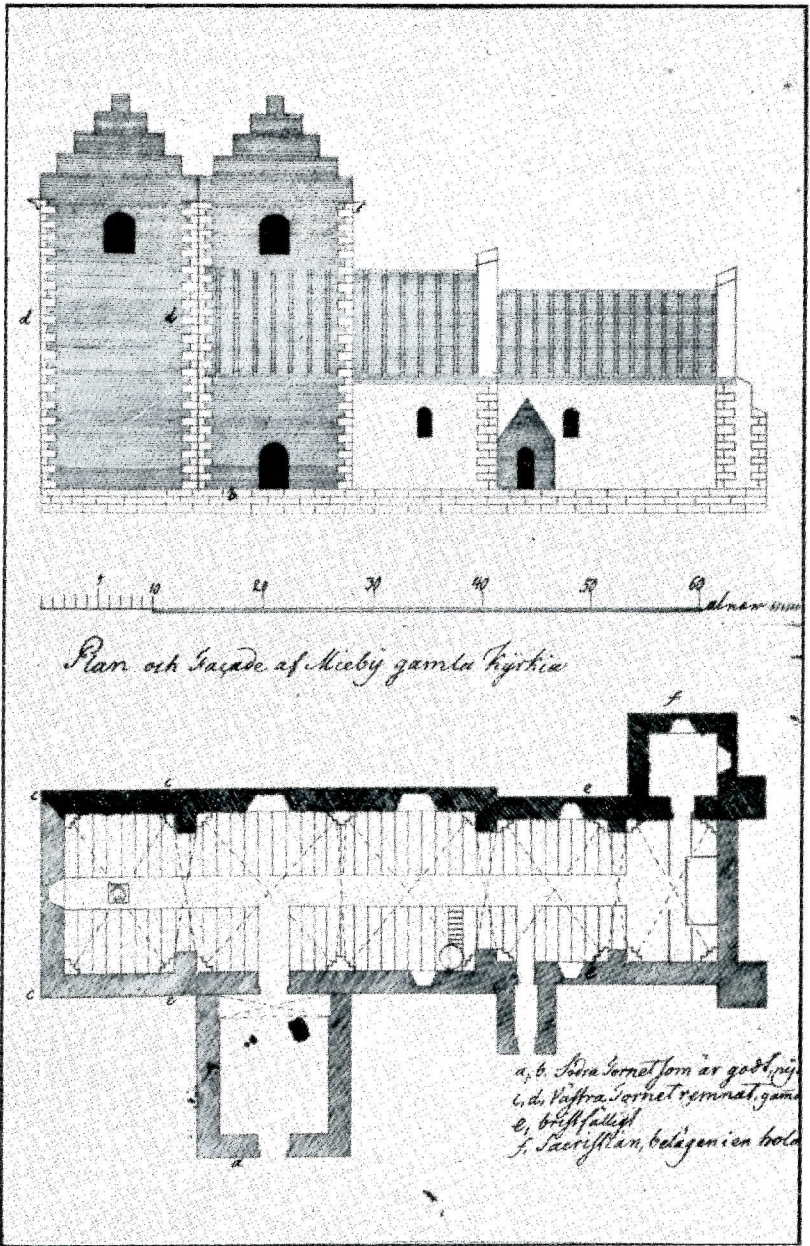 d
d
b
5 10 20 30 40 50 60 alnar
Plan och Façade af Mieby gamla Kyrkia
f
c
c
e
c
e
e
b
a
a, b. Södra Tornet som är godt, ny
c, d, Västra Tornet remnat, gam
e, bristfälligt
f. Sacristian, belägen i en hold